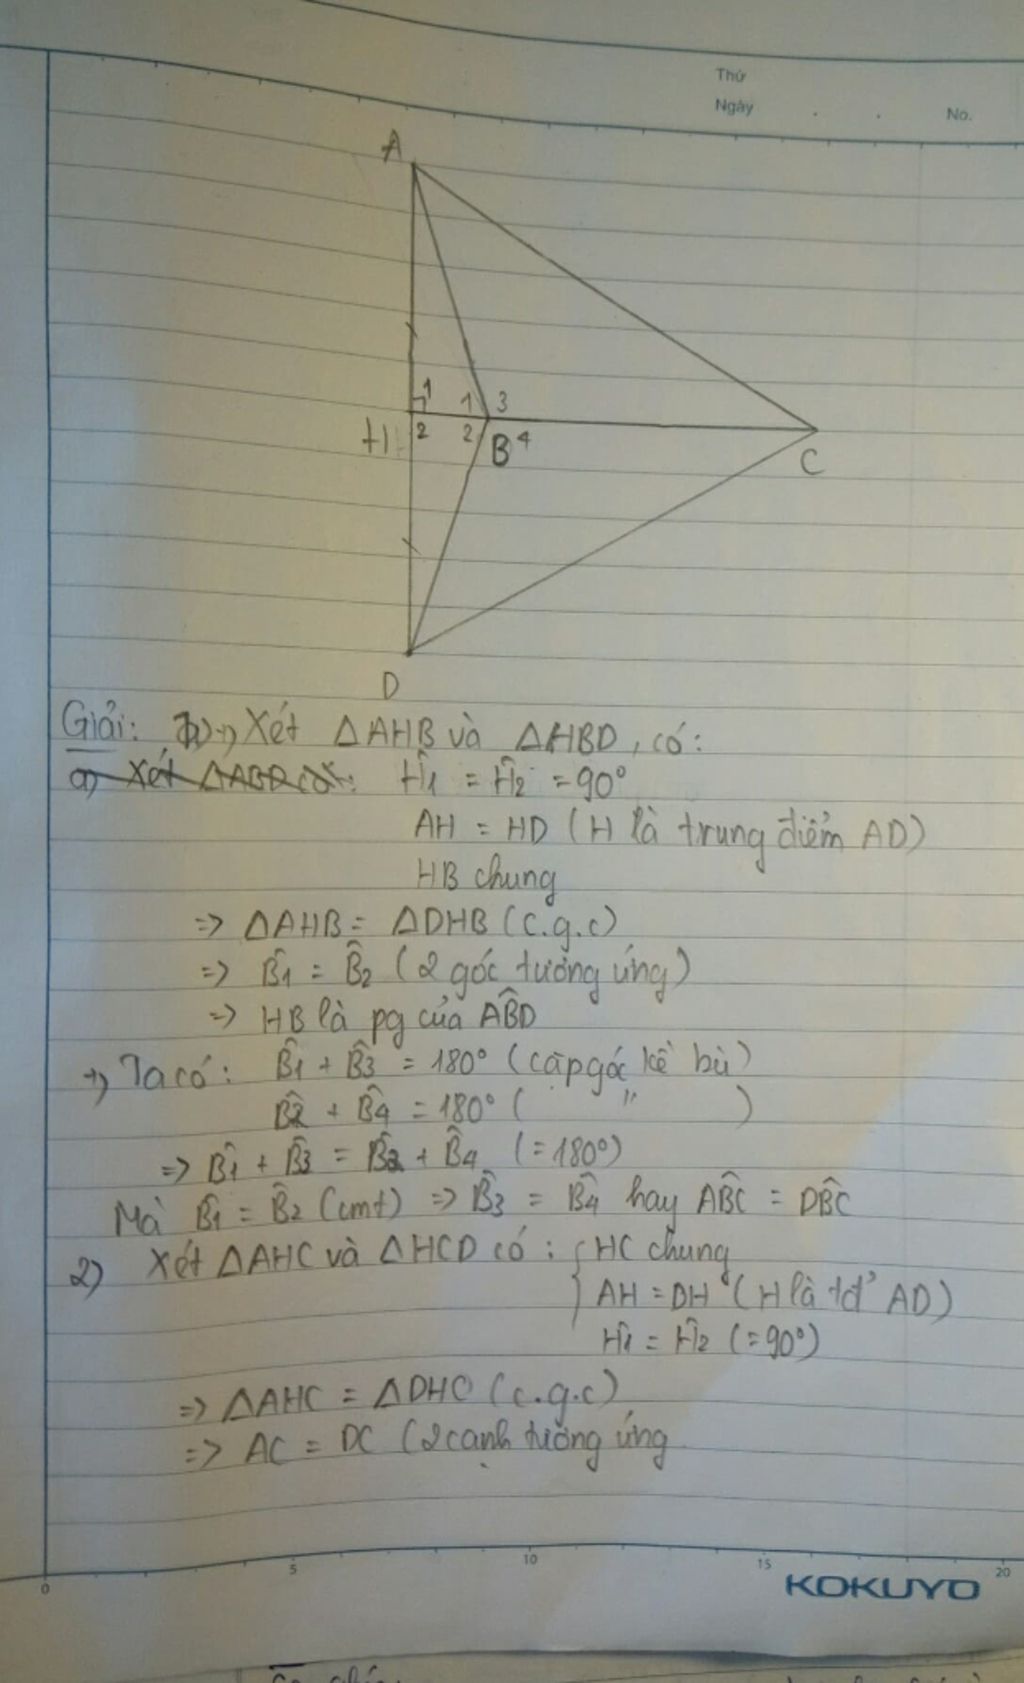 Thứ
Ngày . . No.
A
1 1 3
H 2 2 B 4
C
D
Giải: +, Xét △AHB và △HBD, có:
a) Xét △ABD có: Ĥ1 = Ĥ2 = 90°
AH = HD (H là trung điểm AD)
HB chung
=> △AHB = △DHB (c.g.c)
=> B̂1 = B̂2 (2 góc tương ứng)
=> HB là pg của AB̂D
+, Ta có: B̂1 + B̂3 = 180° (cặp góc kề bù)
B̂2 + B̂4 = 180° ( " )
=> B̂1 + B̂3 = B̂2 + B̂4 (=180°)
Mà B̂1 = B̂2 (cmt) => B̂3 = B̂4 hay AB̂C = DB̂C
2) Xét △AHC và △HCD có: { HC chung
AH = DH (H là tđ' AD)
Ĥ1 = Ĥ2 (=90°)
=> △AHC = △DHC (c.g.c)
=> AC = DC (2 cạnh tương ứng
0 5 10 15 20
KOKUYO